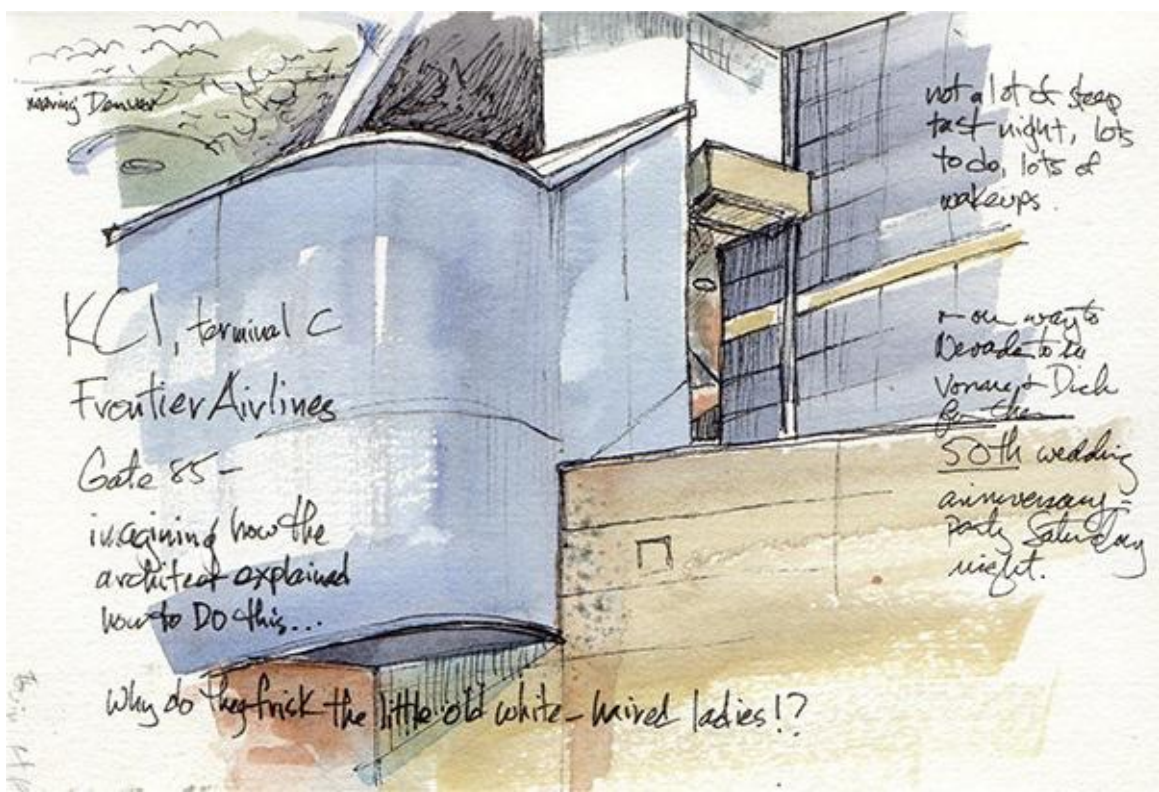 nearing Denver
KCI, terminal C
Frontier Airlines
Gate 85 -
imagining how the
architect explained
how to DO this...
Why do they frisk the little old white-haired ladies!?
not a lot of sleep
last night, lots
to do, lots of
wakeups.
on our way to
Nevada to
+ Dick
for their
50th wedding
anniversary -
party Saturday
night.